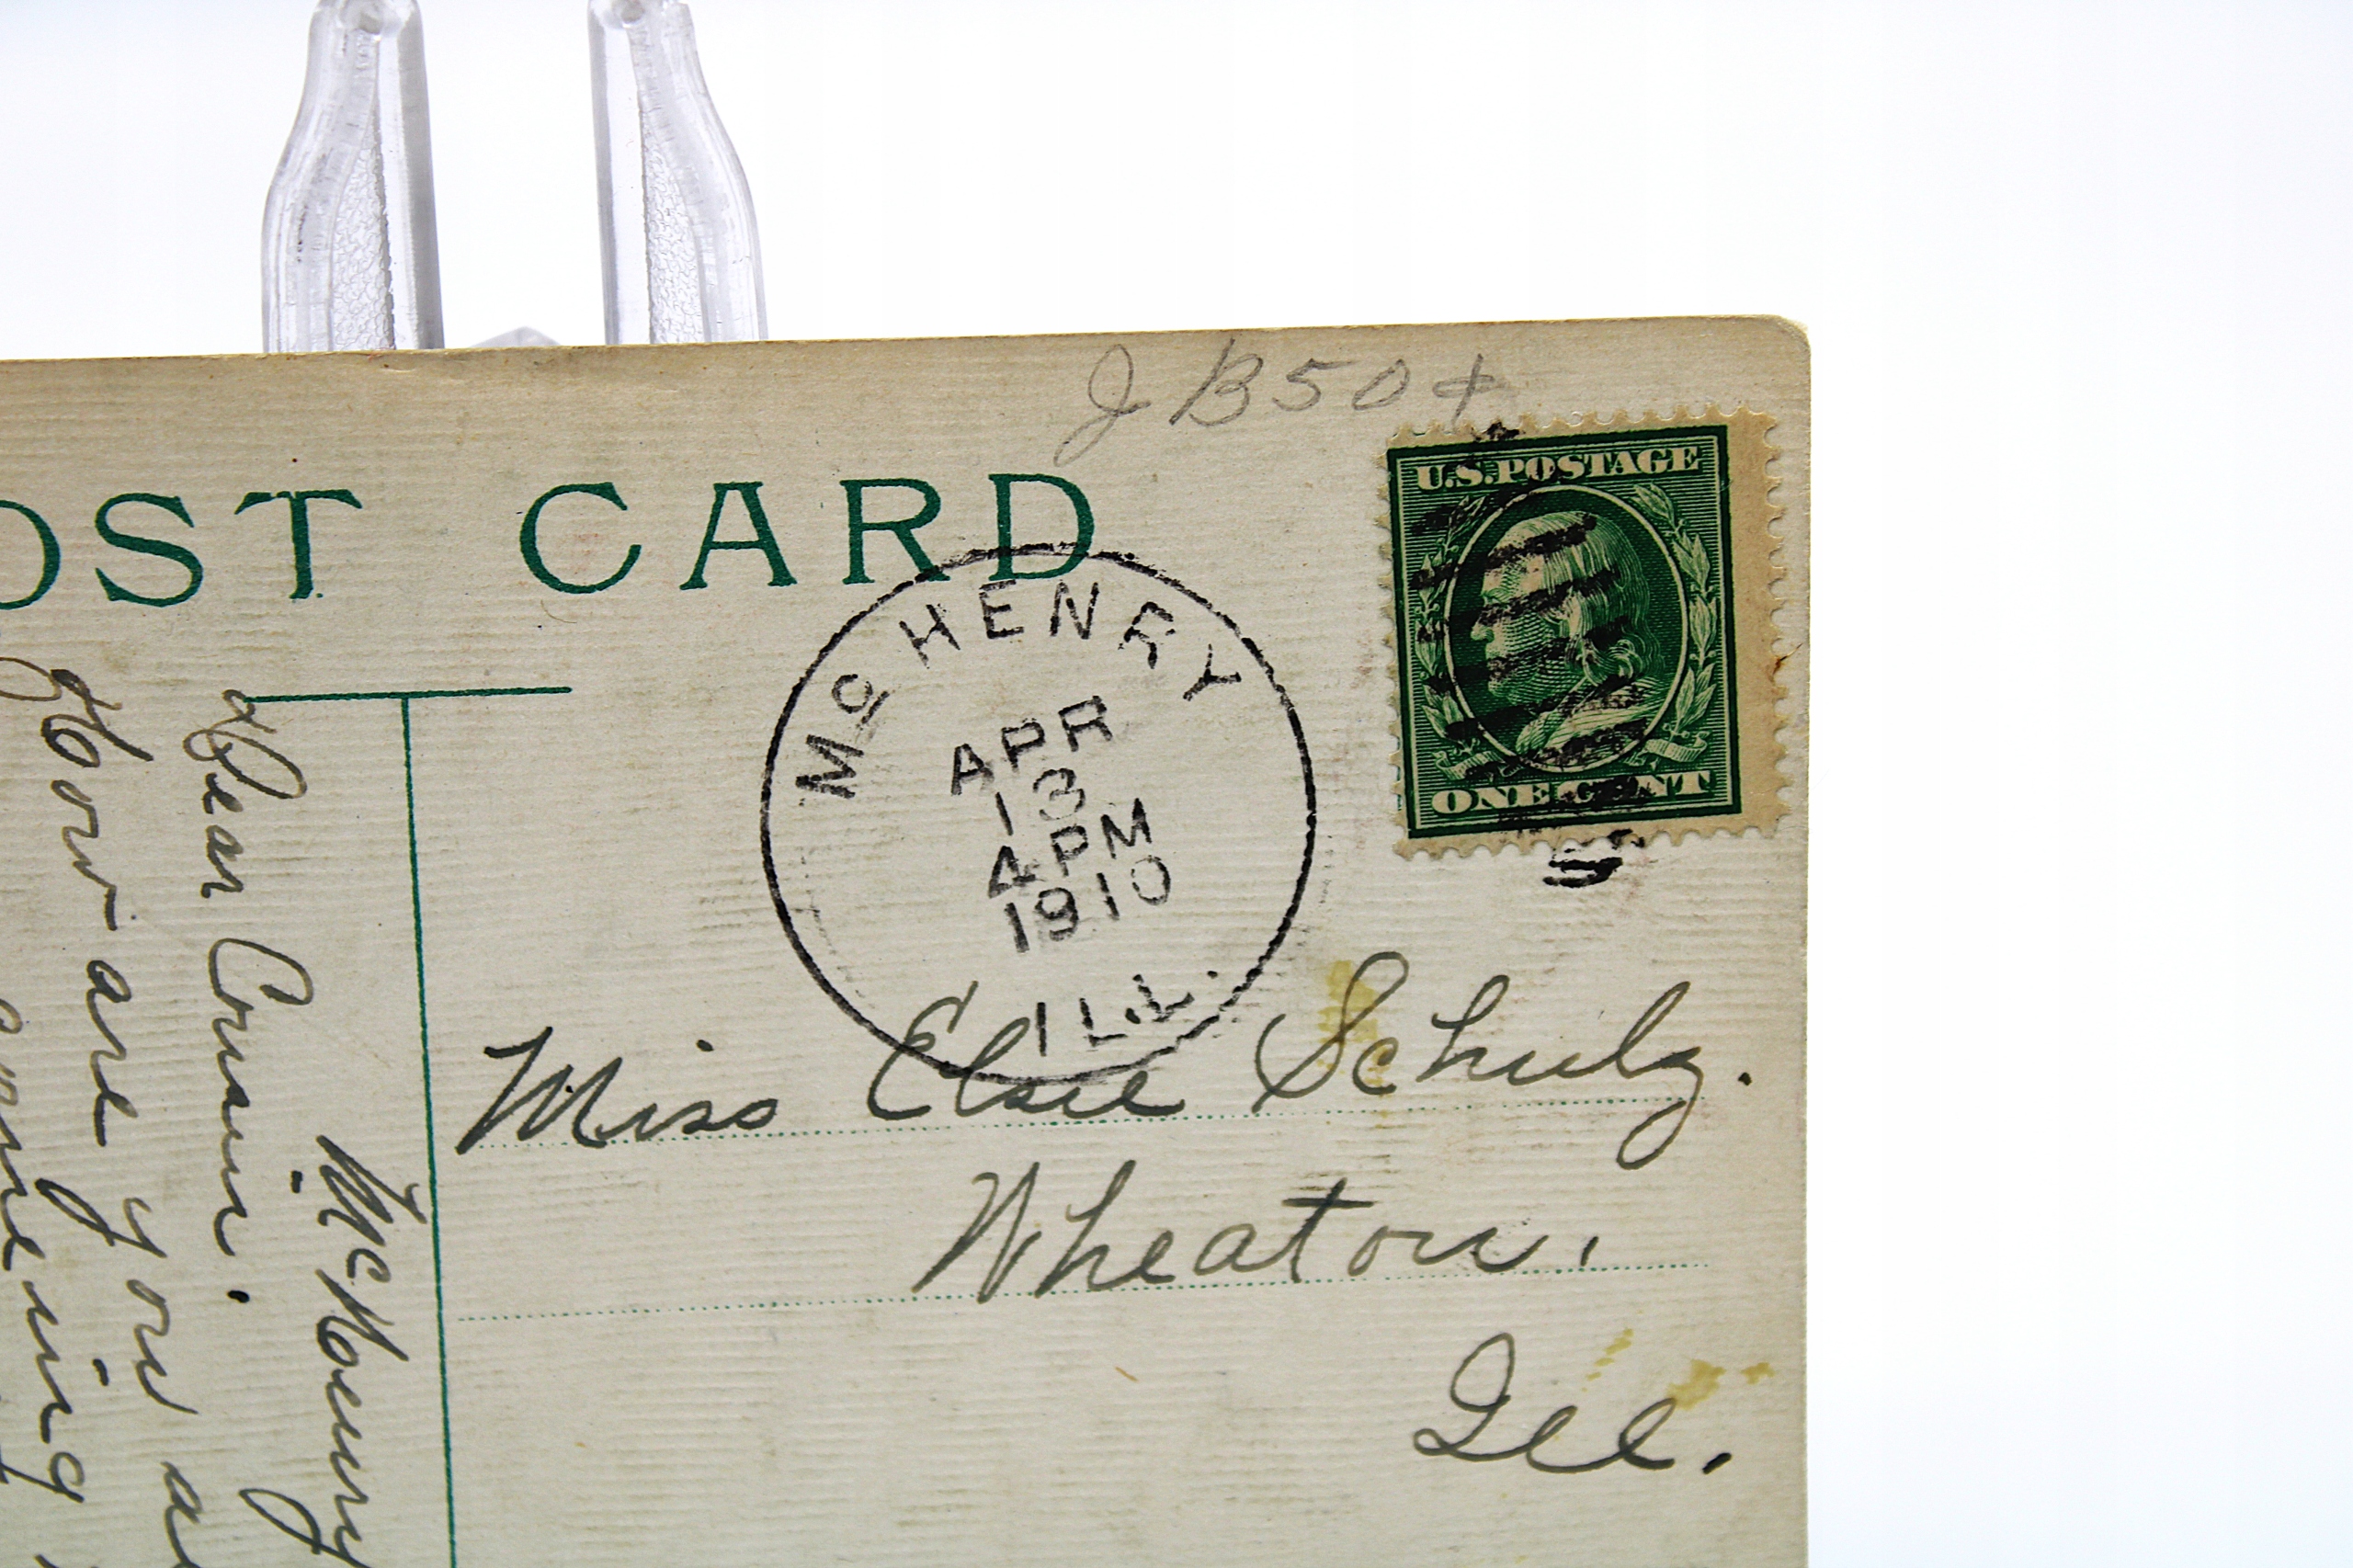 J B50+
U.S.POSTAGE
ONE CENT
OST CARD
McHENRY
APR
13
4 PM
1910
ILL.
Miss Elsie Schulz.
Wheaton,
Ill.
McHenry
Dear Cousin.
How are you